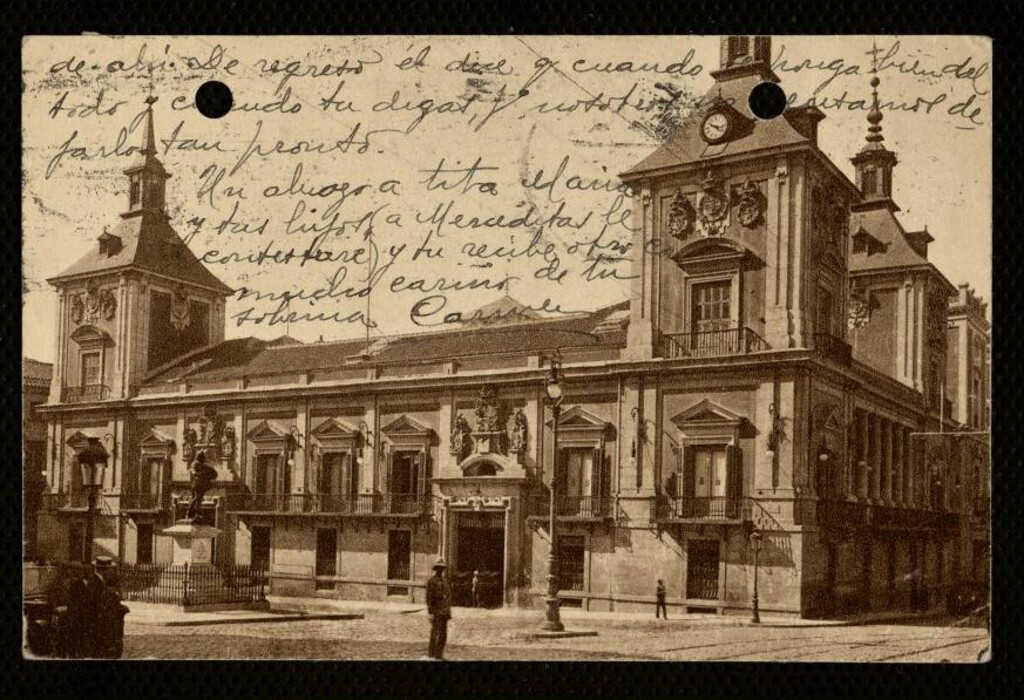 de ahi. De regreso él dice q cuando ponga bien del
todo y cuando tu digas, y nosotros
tan pronto.
Un abrazo a tita Maria
y tus hijos (a Merceditas le
contestaré) y tu recibe otro con
mucho cariño de tu
sobrina Carmen